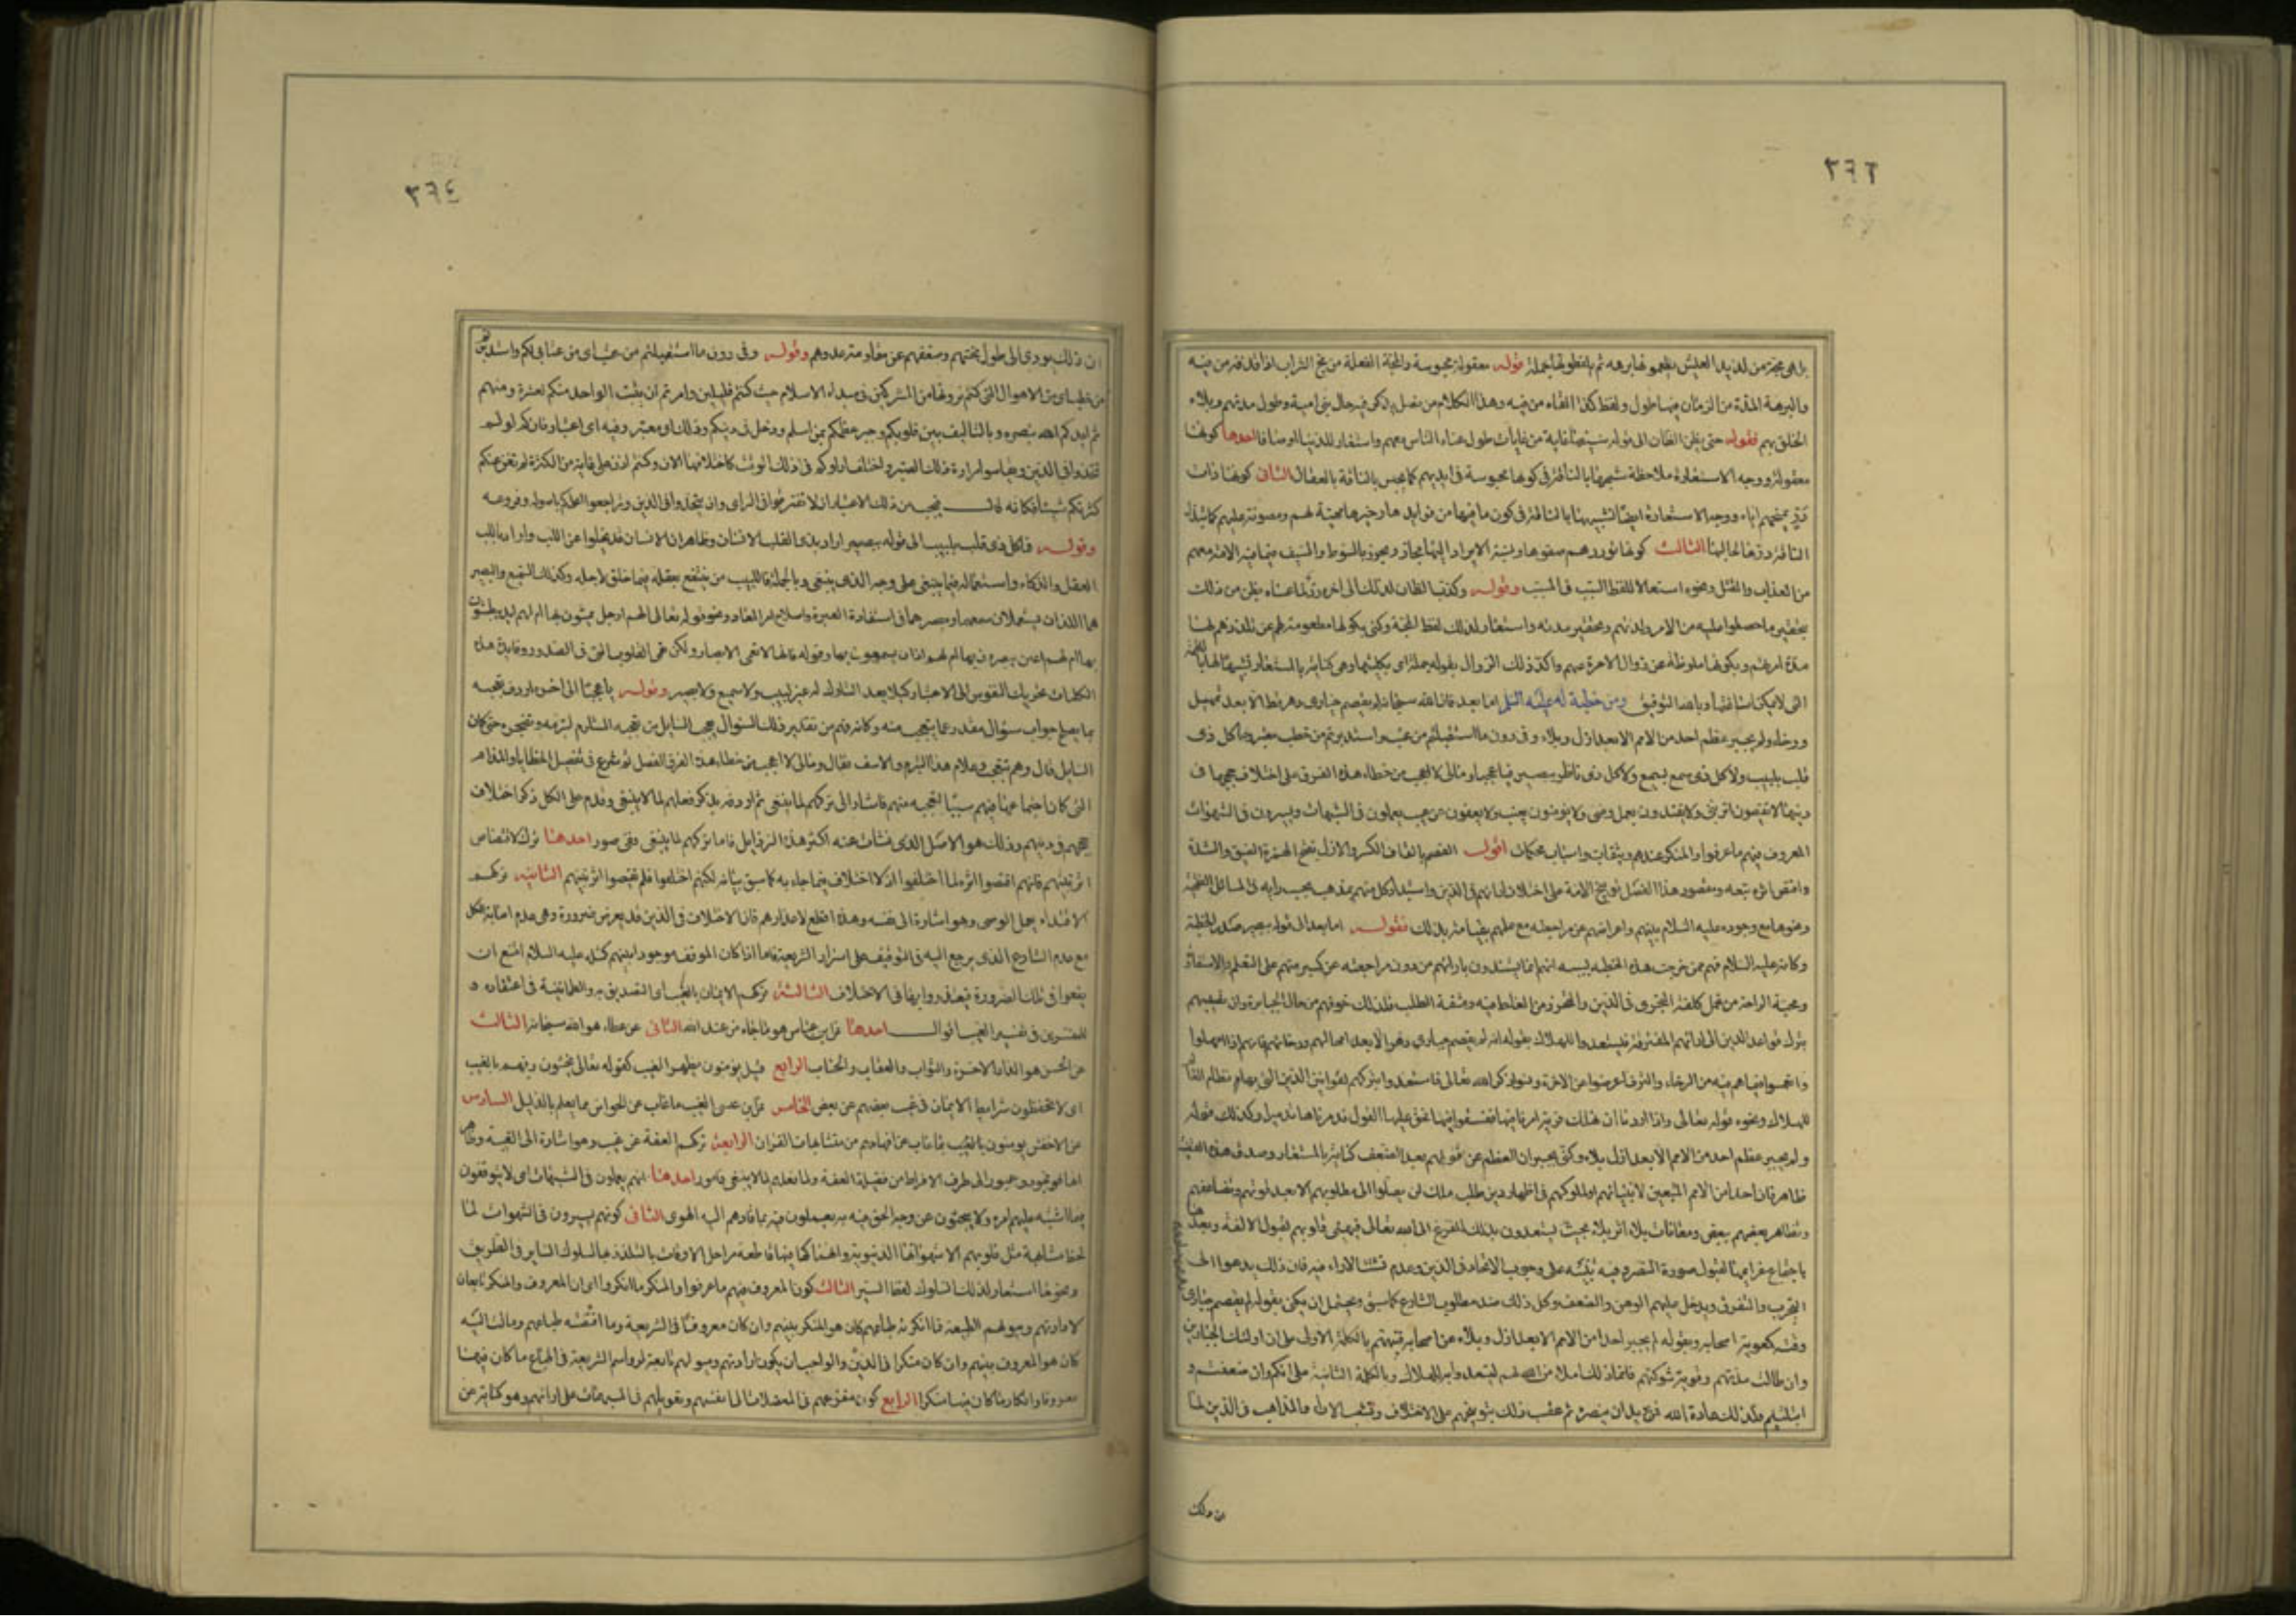 ٣٦٣
بل هى مجة من لذيذ العيش يتطعمونها برهة ثم يلفظونها جملة قوله معقولة محبوسة والمجة الفعلة من مج الشراب اذا قذفه من فيه
والبرهة المدة من الزمان فيها طول ولفظ كذا القاه من فيه وهذا الكلام من فصل يذكر فيه حال بنى امية وطول مدتهم وبلاء
الخلق بهم فقوله حتى يظن الظان الى قوله غاية من غايات طول عناء الناس معهم واستعار للدنيا اوصافا احدها كونها
معقولة ووجه الاستعارة ملاحظة شبهها بالناقة فى كونها محبوسة فى ايديهم كما يحبس الناقة بالعقال الثانى كونها ذات
در تمنحهم اياه ووجه الاستعارة ايضا تشبيهها بالناقة فى كون ما فيها من فوايدها وخيرها مهيئة لهم ومصبوبة عليهم كما تبذل
الناقة درها لحالبها الثالث كونها توردهم صفوها ونسبة الايراد اليها مجاز وتجوز بالسوط والسيف فيما فيه الامة معهم
من العذاب والقتل ونحوه استعمالا للفظ السبب فى المسبب وقوله وكذب الظان لذلك الى اخره رد لما عساه يظن من ذلك
بتحقير ما حصلوا عليه من الامر ولذتهم وتحقير مدته واستعار لذلك لفظ المجة وكنى بكونها مطعومة لهم عن تلذذهم بها
مدة امرهم وبكونها ملفوظة عن زوال الامرة عنهم واكد ذلك الزوال بقوله جملة اى بكليتها وهى كناية بالمستعار تشبيها لها باللقمة
التى لا يمكن اساغتها وبالله التوفيق ومن خطبة له عليه السلم اما بعد فان الله سبحانه لم يقصم جبارى دهر قط الا بعد تمهيل
ورخاء ولم يجبر عظم احد من الامم الا بعد ازل وبلاء وفى دون ما استقبلتم من عتب واستدبرتم من خطب معتبر وما كل ذى
قلب بلبيب ولا كل ذى سمع بسميع ولا كل ذى ناظر ببصير فيا عجبا ومالى لا اعجب من خطاء هذه الفرق على اختلاف حججها فى
دينها لا يقتصون اثر نبى ولا يقتدون بعمل وصى ولا يؤمنون بغيب ولا يعفون عن عيب يعملون فى الشبهات ويسيرون فى الشهوات
المعروف فيهم ما عرفوا والمنكر عندهم اقول القصم بالقاف الكسر والازل بفتح الهمزة الضيق والشدة
واقتص اثره تبعه ومقصود هذا الفصل توبيخ الامة على اختلاف ارائهم فى الدين واستبداد كل منهم بمذهب بحسب رايه فى المسائل الفقهية
ونحوها مع وجوده عليه السلام بينهم واعراضهم عن مراجعته مع علمهم بقيامه بذلك فقوله اما بعد الى قوله ببصير صدر الخطبة
وكانه عليه السلام فهم ممن خرجت هذه الخطبة بسببه انهم انما يستبدون بارائهم من دون مراجعته عن كبر منهم على التعلم والاستفادة
ومحبة الراحة من تحمل كلفة التحرى فى الدين والتحرز من الغلط فيه ومشقة الطلب فلذلك خوفهم من حال الجبابرة وان نصيبهم
بترك قواعد الدين الى ارائهم المتفرقة فيستعدوا للهلاك بقوله انه لم يقصم جبارى دهر الا بعد امهالهم ورخائهم فانهم اذا امهلوا
وانغمسوا فيما هم فيه من الرخاء والترف اعرضوا عن الاخرة ونسوا ذكر الله تعالى فاستعدوا بتركهم لقوانين الدين التى بها نظام العالم
للهلاك ونحوه قوله تعالى واذا اردنا ان نهلك قرية امرنا مترفيها ففسقوا فيها فحق عليها القول فدمرناها تدميرا وكذلك قوله
ولم يجبر عظم احد من الامم الا بعد ازل وبلاء وكنى بجبران العظم عن قوتهم بعد الضعف كناية بالمستعار وصدق هذه القضية
ظاهر فان احدا من الامم المتبعين لانبيائهم او لملوكهم فى اظهار دين او طلب ملك لن يصلوا الى مطلوبهم الا بعد
وتظاهر بعضهم ببعض ومعانات بلاء اثر بلاء بحيث يستعدون بذلك للفزع الى الله تعالى فيهيئ قلوبهم لقبول الالفة
باجتماع عزايمها لقبول صورة النصر وفيه تنبيه على وجوب الاتحاد فى الدين وعدم تشتت الاراء فيه فان ذلك يدعو الى
التحزب والتفرق ويدخل عليهم الوهن والضعف وكل ذلك ضد مطلوب الشارع كما سبق ويحتمل ان يكنى بقوله لم يقصم جبارى
اصحابه وبقوله لم يجبر احدا من الامم الا بعد ازل وبلاء عن اصحابه فنبههم بالكلمة الاولى على ان اولئك الجبارين
وان طالت مدتهم وقويت شوكتهم فانما ذلك املاء من الله لهم ليستعدوا به للهلاك وبالكلمة الثانية على انكم وان ضعفتم و
ابتليتم فذلك عادة الله فيمن يريد ان ينصره ثم عقب ذلك بتوبيخهم على الاختلاف وتشعب الاراء والمذاهب فى الدين لما
ان ذلك
٣٦٤
ان ذلك يؤدى الى طول محنتهم وضعفهم عن مقاومة عدوهم وقوله وفى دون ما استقبلتم من عتب اى من عتابى لكم واستدبرتم
من خطب اى من الاهوال التى كنتم ترونها من المشركين فى مبداء الاسلام حيث كنتم قليلين وامرتم ان يثبت الواحد منكم لعشرة ومنهم
ثم ايدكم الله بنصره وبالتاليف بين قلوبكم وجبر عظمكم بمن اسلم ودخل فى دينكم وذلك او معتبر وفيه اى اعتبار فانكم لو لم
تتحدوا فى الدين وتقاسوا مرارة ذلك الصبر واختلف اراؤكم فى ذلك الوقت كاختلافها الان وكنتم اذن على غاية من الكثرة لم تغن عنكم
كثرتكم شيئا فكانه قال فيجب من ذلك الاعتبار ان لا تفترقوا فى الراى وان تتحدوا فى الدين وتراجعوا اعلمكم باصوله وفروعه
وقوله فما كل ذى قلب بلبيب الى قوله ببصير اراد بذى القلب الانسان وظاهر ان الانسان قد يخلوا عن اللب واراد باللب
العقل والذكاء واستعماله فيما ينبغى على وجه الذى ينبغى وبالجملة فاللبيب من ينتفع بعقله فيما خلق لاجله وكذلك السميع والبصير
هما اللذان يستعملان سمعهما وبصرهما فى استفادة العبرة واصلاح امر المعاد ونحوه قوله تعالى الهم ارجل يمشون بها ام لهم ايد يبطشون
بها ام لهم اعين يبصرون بها ام لهم اذان يسمعون بها وقوله فانها لا تعمى الابصار ولكن تعمى القلوب التى فى الصدور وفايدة هذه
الكلمات تحريك النفوس الى الاعتبار كيلا يعد التارك له غير لبيب ولا سميع ولا بصير وقوله يا عجبا الى اخره اردف تعجبه
بما يصلح جواب سؤال مقدر عما يتعجب منه وكانه فهم من تقدير ذلك السؤال تعجب السايل من تعجبه المستلزم لتبرمه وتضجره حتى كان
السايل قال ومم تتعجب وعلام هذا التبرم والاسف فقال ومالى لا اعجب من خطاء هذه الفرق الفصل ثم شرع فى تفصيل الخطايا والمذام
التى كان اجتماعها فيهم سببا لتعجبه منهم فاشار الى تركهم لما ينبغى ثم اردفه بذكر فعلهم لما لا ينبغى وقدم على الكل ذكر اختلاف
حججهم فى دينهم وذلك هو الاصل الذى نشات عنه اكثر هذه الرذايل فاما تركهم لما ينبغى ففى صور احدها ترك الاقتصاص
اثر نبيهم فانهم لو اقتصوا اثره لما اختلفوا اذ لا اختلاف فيما جاء به كما سبق بيانه لكنهم اختلفوا فلم يقتصوا اثر نبيهم الثانية تركهم
الاقتداء بعمل الوصى وهو اشارة الى نفسه وهذا اقطع لاعذارهم فان الاختلاف فى الدين قد يعرض ضرورة وهى عدم اصابة الكل
مع عدم الشارع الذى يرجع اليه فى التوقيف على اسرار الشريعة فاما اذا كان الموقف موجودا بينهم كمثله عليه السلام امتنع ان
يقعوا فى تلك الضرورة فيعتذروا بها فى الاختلاف الثالثة تركهم الايمان بالغيب اى التصديق به والطمانينة فى اعتقاده و
للمفسرين فى تفسير الغيب اقوال احدها عن ابن عباس هو ما جاء من عند الله الثانى عن عطاء هو الله سبحانه الثالث
عن الحسن هو الدار الاخرة والثواب والعقاب والحساب الرابع قيل يؤمنون بظهر الغيب كقوله تعالى يخشون ربهم بالغيب
اى لا يحفظون شرايط الايمان فى غيب بعضهم عن بعض الخامس عن ابن عيسى الغيب ما غاب عن الحواس مما يعلم بالدليل السادس
عن الاخفش يومنون بالغيب بما غاب عن افهامهم من متشابهات القران الرابعة تركهم العفة عن عيب وهو اشارة الى الغيبة وظاهر
انها فجور وعبور الى طرف الافراط من فضيلة العفة واما فعلهم لما لا ينبغى فامور احدها انهم يعملون فى الشبهات اى لا يتوقفون
فيما اشتبه عليهم امره ولا يبحثون عن وجه الحق فيه بل يعملون فيه بما قادهم اليه الهوى الثانى كونهم يسيرون فى الشهوات لما
لحظ مشابهة ميل قلوبهم الى شهواتها الدنيوية وانهماكها فيها قاطعة مراحل الاوقات بالتلذذ بها لسلوك الساير فى الطريق
ونحوها استعار لذلك السلوك لفظ السير الثالث كون المعروف فيهم ما عرفوا والمنكر ما انكروا اى ان المعروف والمنكر تابعان
لارادتهم وميولهم الطبيعية فما انكرته طباعهم كان هو المنكر بينهم وان كان معروفا فى الشريعة وما اقتضته طباعهم ومالت اليه
كان هو المعروف بينهم وان كان منكرا فى الدين والواجب ان يكون ارادتهم وميولهم تابعة لرواسم الشريعة فى اتباع ما كان فيها
معروفا وانكار ما كان فيها منكرا الرابع كون مفزعهم فى المعضلات الى انفسهم وتعويلهم فى المبهمات على ارائهم وهو كناية عن